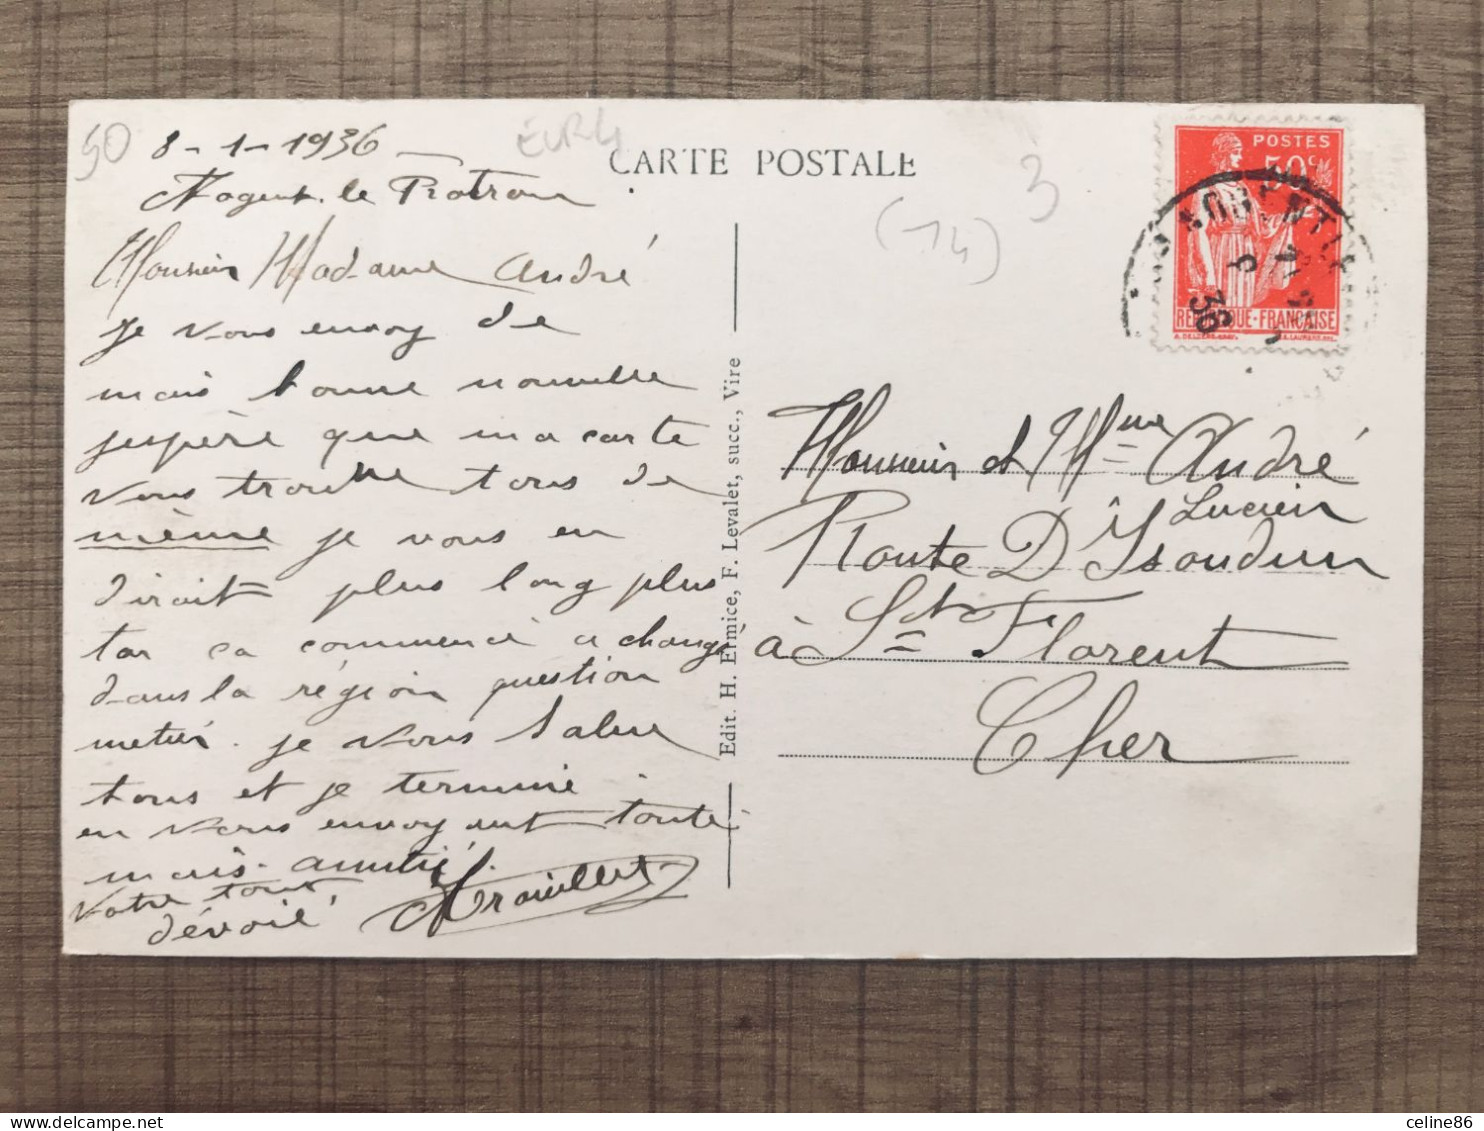 50
8-1-1936
Nogent-le Rotrou
EUR4
CARTE POSTALE
3
(14)
Monsieur Madame André
je vous envoy de
mais bonne nouvelle
jespère que ma carte
vous trouve tous de
même je vous en
dirait plus long plus
tar ca commence a changé
dans la région question
metier. je vous salue
tous et je termine
en vous envoyant toute
mais amitié.
Votre tout
dévoié
Edit. H. Ermice, F. Levalet, succ., Vire
POSTES
50c
REPUBLIQUE-FRANÇAISE
36
Monsieur et Mme André
Lucien
Route D'Issoudun
à St Florent
Cher
celine86